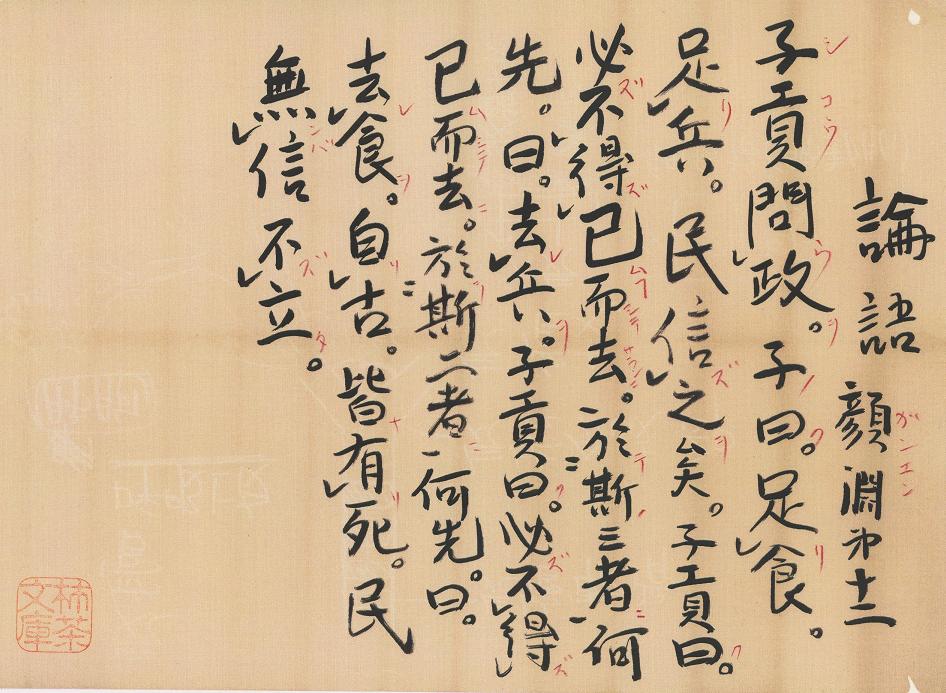 論語 顔淵㐧十二
子貢問政。子曰。足食。
足兵。民信之矣。子貢曰。
必不得已而去。於斯三者何
先。曰。去兵。子貢曰。必不得
已而去。於斯二者何先。曰。
去食。自古。皆有死。民
無信不立。
柿茶
文庫